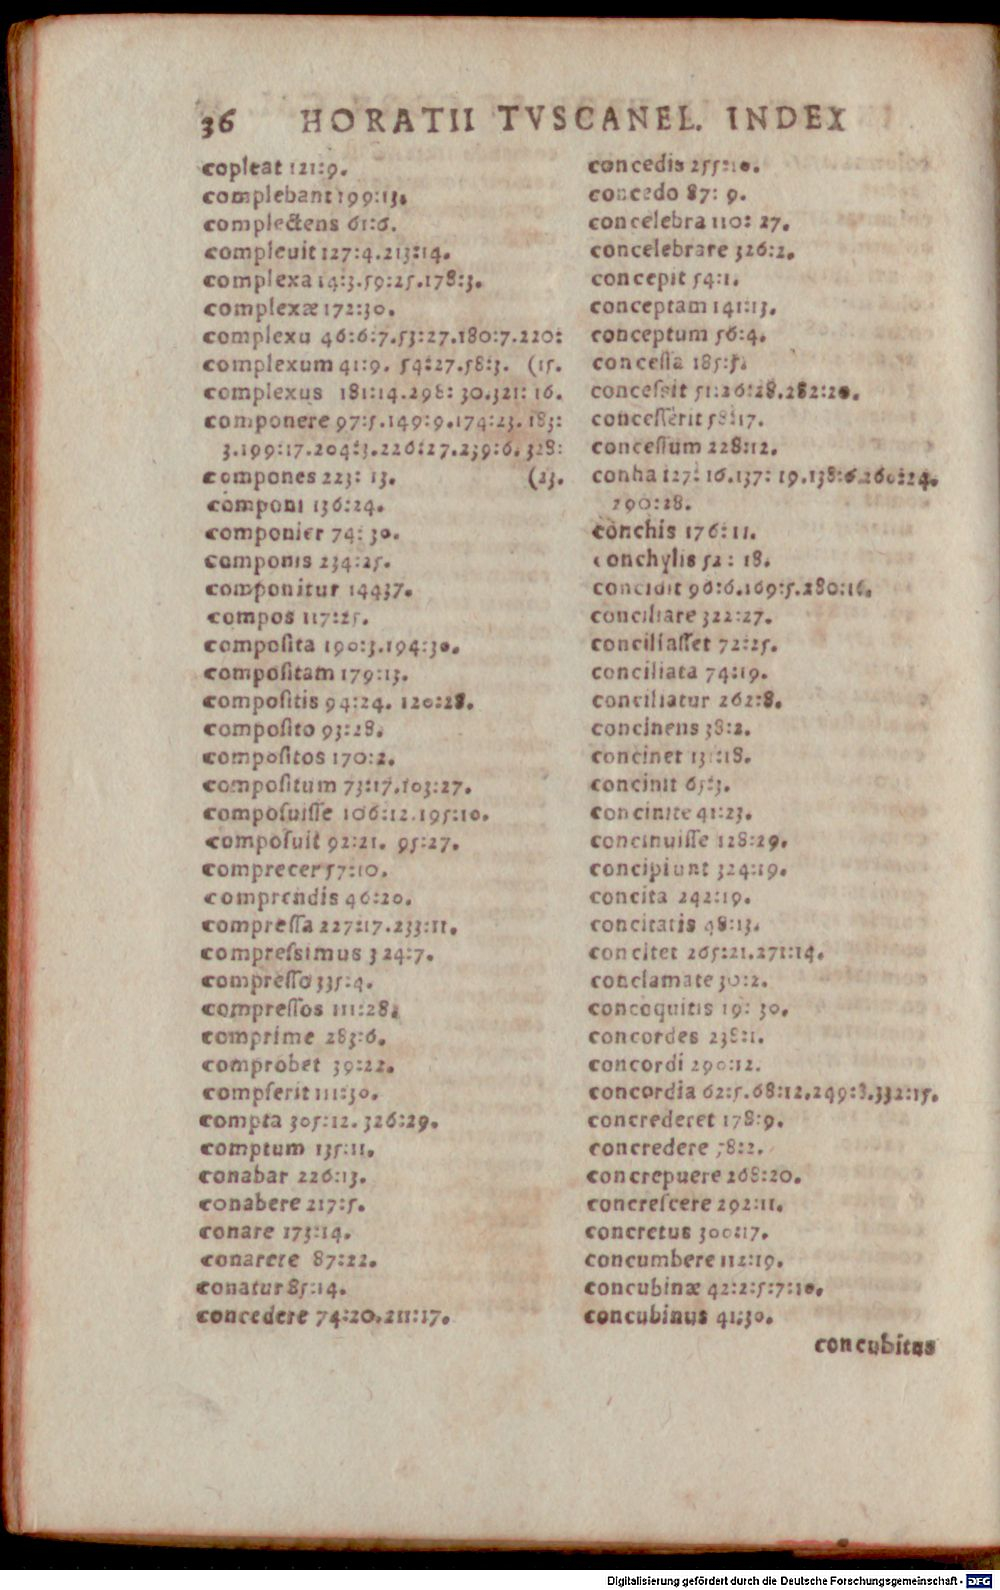 36 HORATII TVSCANEL. INDEX
copleat 121:9.
complebant 199:13.
complectens 61:6.
compleuit 127:4.213:14.
complexa 14:3.59:25.178:3.
complexæ 172:30.
complexu 46:6:7.53:27.180:7.220:
complexum 41:9. 54:27.58:3. (15.
complexus 181:14.298: 30.321: 16.
componere 97:5.149:9.174:23.183:
3.199:17.204:3.226:27.239:6.328:
compones 223: 13. (23.
componi 136:24.
componier 74: 30.
componis 234:25.
componitur 14437.
compos 117:25.
composita 190:3.194:30.
compositam 179:13.
compositis 94:24. 120:28.
composito 93:28.
compositos 170:2.
compositum 73:17.103:27.
composuisse 106:12.195:10.
composuit 92:21. 95:27.
comprecer 57:10.
comprendis 46:20.
compressa 227:17.233:11.
compressimus 324:7.
compresso 335:4.
compressos 111:28.
comprime 283:6.
comprobet 39:22.
compserit 111:30.
compta 305:12. 326:29.
comptum 135:11.
conabar 226:13.
conabere 217:5.
conare 173:14.
conarere 87:22.
conatur 85:14.
concedere 74:20.211:17.
concedis 255:10.
concedo 87: 9.
concelebra 110: 27.
concelebrare 326:2.
concepit 54:1.
conceptam 141:13.
conceptum 56:4.
concessa 185:5.
concessit 51:26:28.282:20.
concesserit 58:17.
concessum 228:12.
conha 127: 16.137: 19.138:6.260:24.
290:28.
conchis 176:11.
conchylis 52: 18.
concidit 96:6.169:5.280:16.
conciliare 322:27.
conciliasset 72:25.
conciliata 74:19.
conciliatur 262:8.
concinens 38:2.
concinet 131:18.
concinit 65:3.
concinite 41:23.
concinuisse 128:29.
concipiunt 324:19.
concita 242:19.
concitatis 48:13.
concitet 265:21.271:14.
conclamate 30:2.
concoquitis 19: 30.
concordes 238:1.
concordi 290:12.
concordia 62:5.68:12.249:8.332:15.
concrederet 178:9.
concredere 58:2.
concrepuere 268:20.
concrescere 292:11.
concretus 300:17.
concumbere 112:19.
concubinæ 42:2:5:7:10.
concubinus 41:30.
concubitus
Digitalisierung gefördert durch die Deutsche Forschungsgemeinschaft - DFG